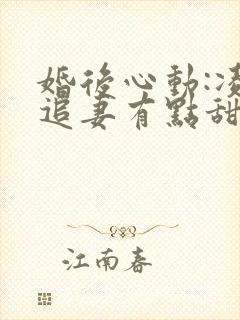 婚後心動:凌
追妻有點甜
江南春